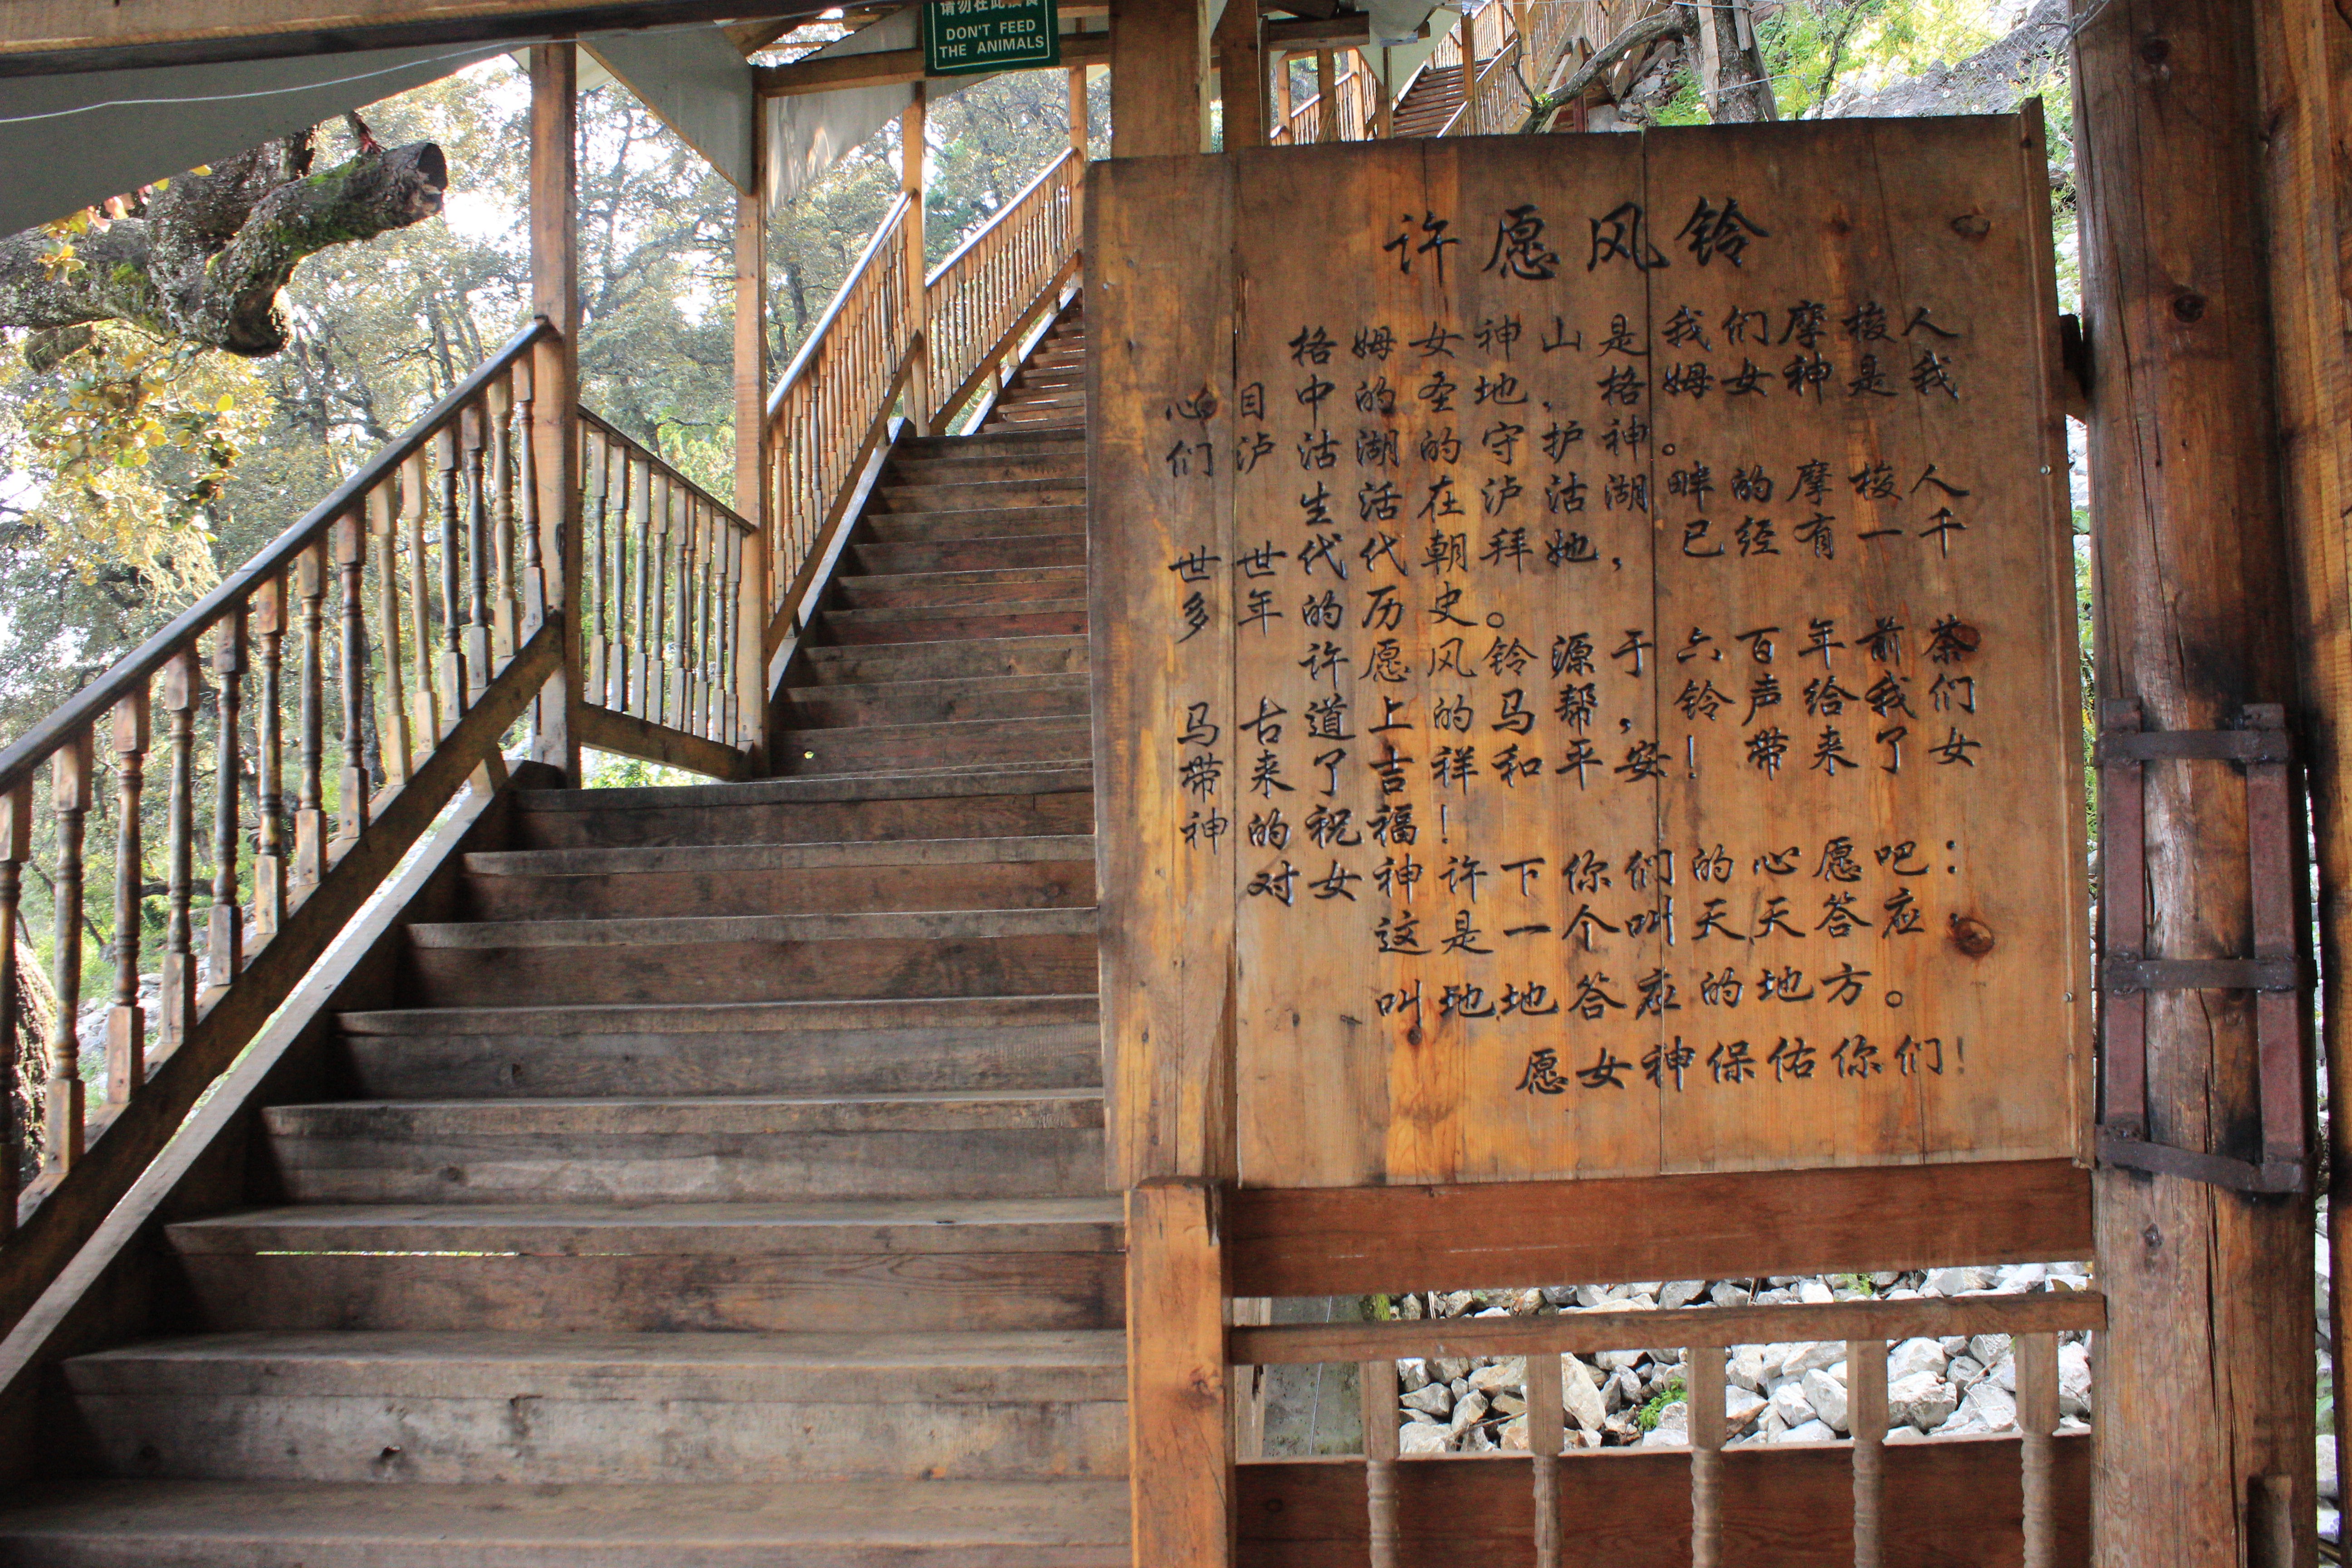 请勿在此投食
DON'T FEED
THE ANIMALS
许愿风铃
格姆女神山是我们摩梭人
心目中的圣地，格姆女神是我
们泸沽湖的守护神。
生活在泸沽湖畔的摩梭人
世世代代朝拜她，已经有一千
多年的历史。
许愿风铃源于六百年前茶
马古道上的马帮，铃声给我们
带来了吉祥和平安！带来了女
神的祝福！
对女神许下你们的心愿吧：
这是一个叫天天答应，
叫地地答应的地方。
愿女神保佑你们！